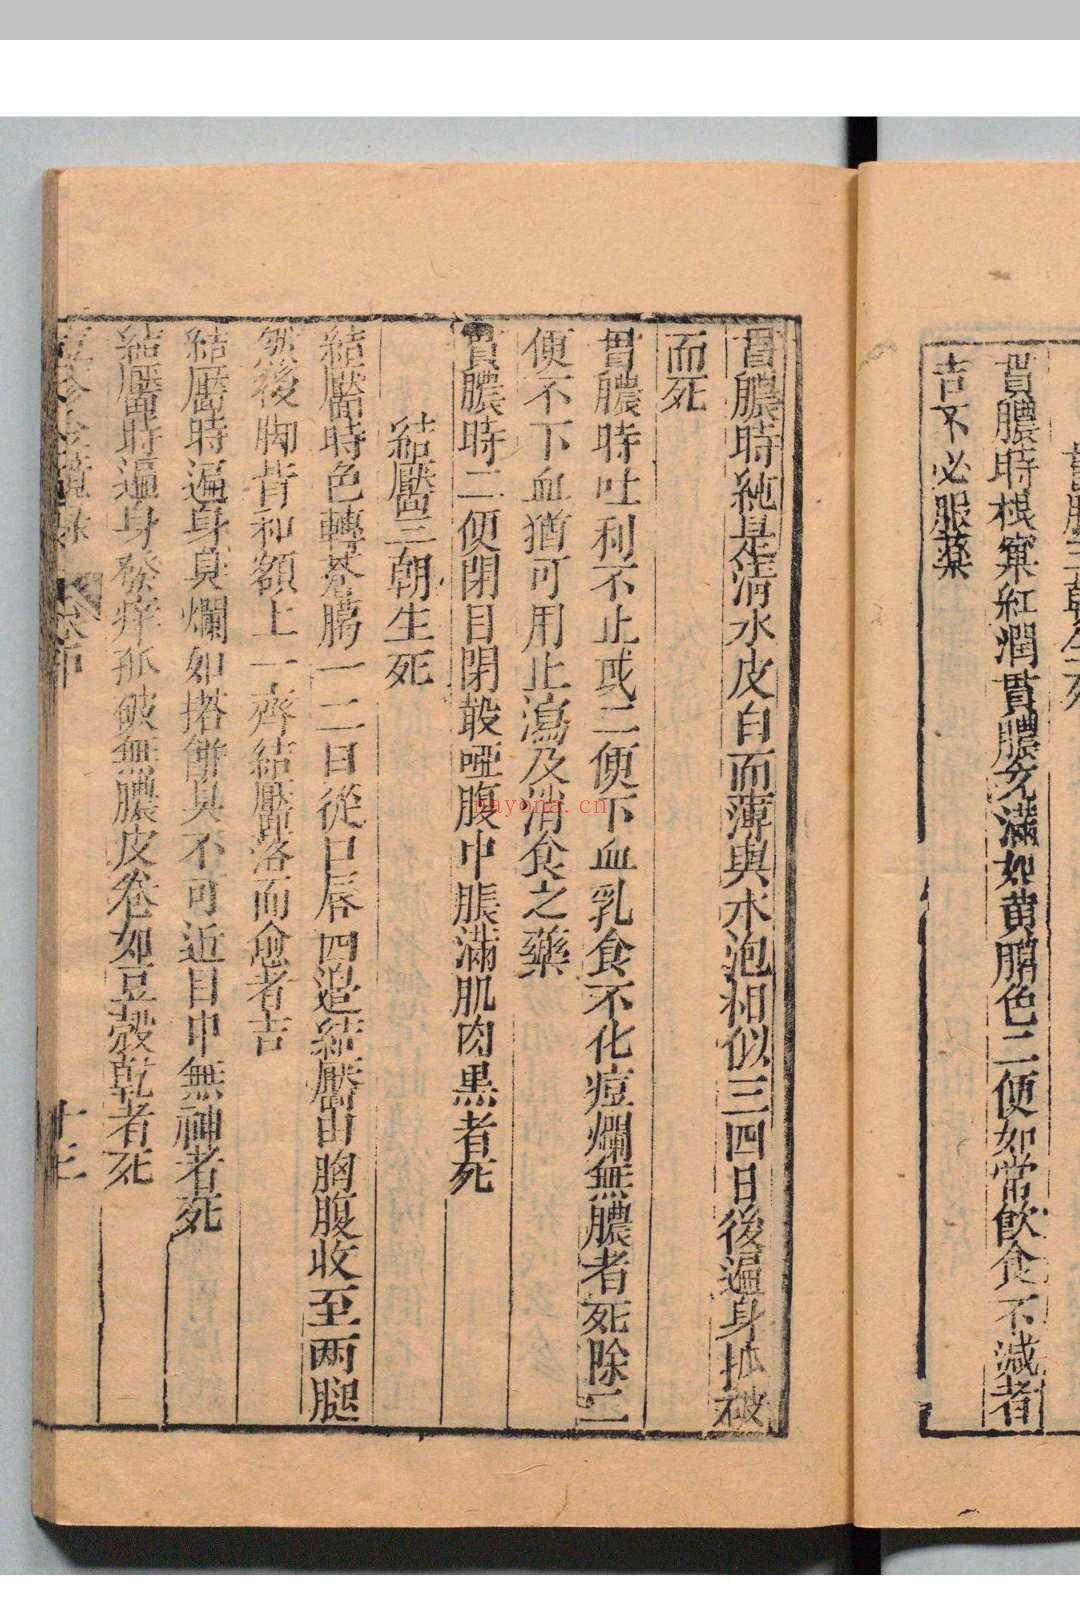 貫膿三朝生死
貫膿時根窠紅潤貫膿充滿如黄蠟色二便如常飲食不減者
吉不必服藥
貫膿時純是清水皮白而薄與水泡相似三四日後遍身抓破
而死
貫膿時吐利不止或二便下血乳食不化痘爛無膿者死除二
便不下血猶可用止瀉及消食之藥
貫膿時二便閉目閉聲啞腹中脹滿肌肉黒者死
結靨三朝生死
結靨時色轉蒼臈一二日從口唇四邉結靨由胸腹收至両腿
然後脚背和額上一齊結靨落而愈者吉
結靨時遍身臭爛如搭餅臭不可近目中無神者死
結靨時遍身發痒抓破無膿皮卷如豆殻乾者死
nayona.cn